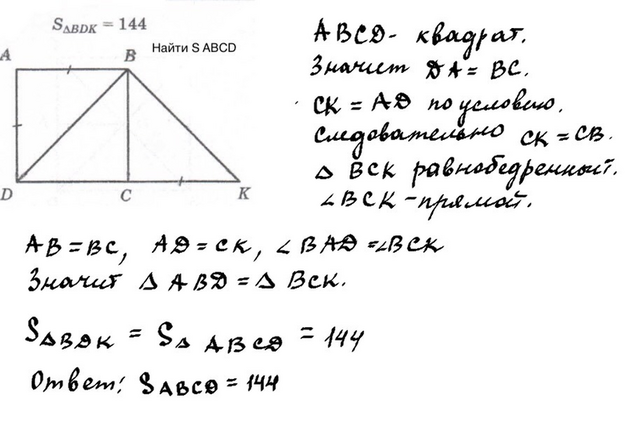 S△BDK = 144
Найти S ABCD
A
B
D
C
K
ABCD - квадрат.
Значит DA = BC.
CK = AD по условию.
Следовательно CK = CB.
△ BCK равнобедренный.
∠BCK - прямой.
AB = BC, AD = CK, ∠BAD = ∠BCK
Значит △ ABD = △ BCK.
S△BDK = S△ABCD = 144
Ответ: SABCD = 144